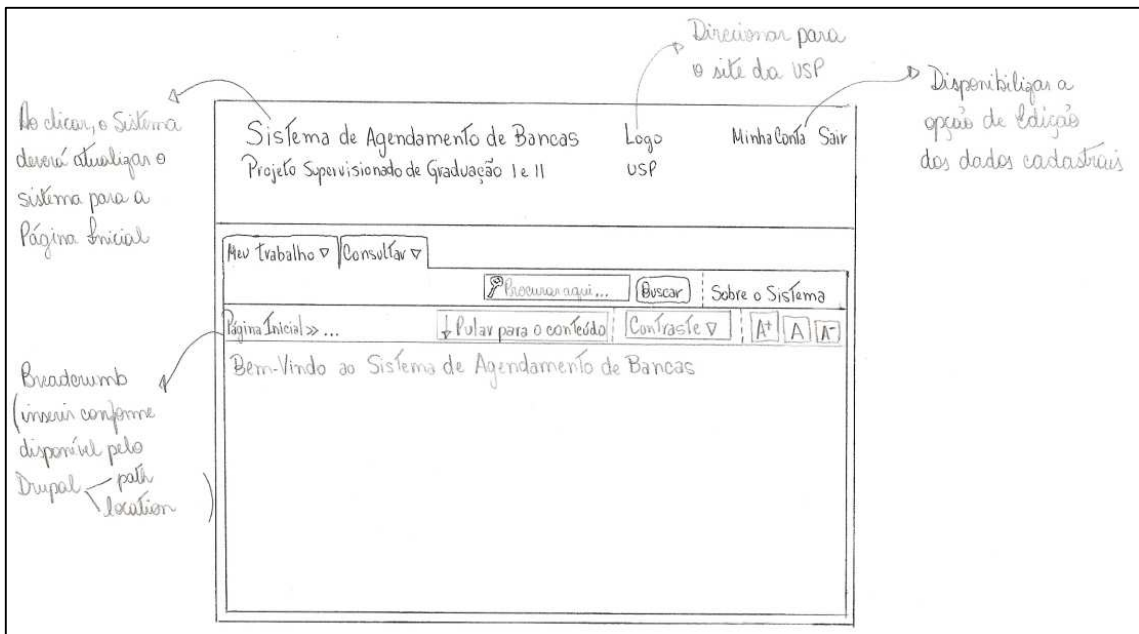 Direcionar para
o site da USP
Disponibilizar a
opção de Edição
dos dados cadastrais
Ao clicar, o Sistema
deverá atualizar o
sistema para a
Página Inicial
Sistema de Agendamento de Bancas
Projeto Supervisionado de Graduação I e II
Logo
USP
Minha Conta Sair
Meu Trabalho ▽ Consultar ▽
Procurar aqui... Buscar Sobre o Sistema
Página Inicial >> ... ↓ Pular para o conteúdo Contraste ▽ A+ A A-
Bem-Vindo ao Sistema de Agendamento de Bancas
Breadcrumb
(inserir conforme
disponível pelo
Drupal path
location)